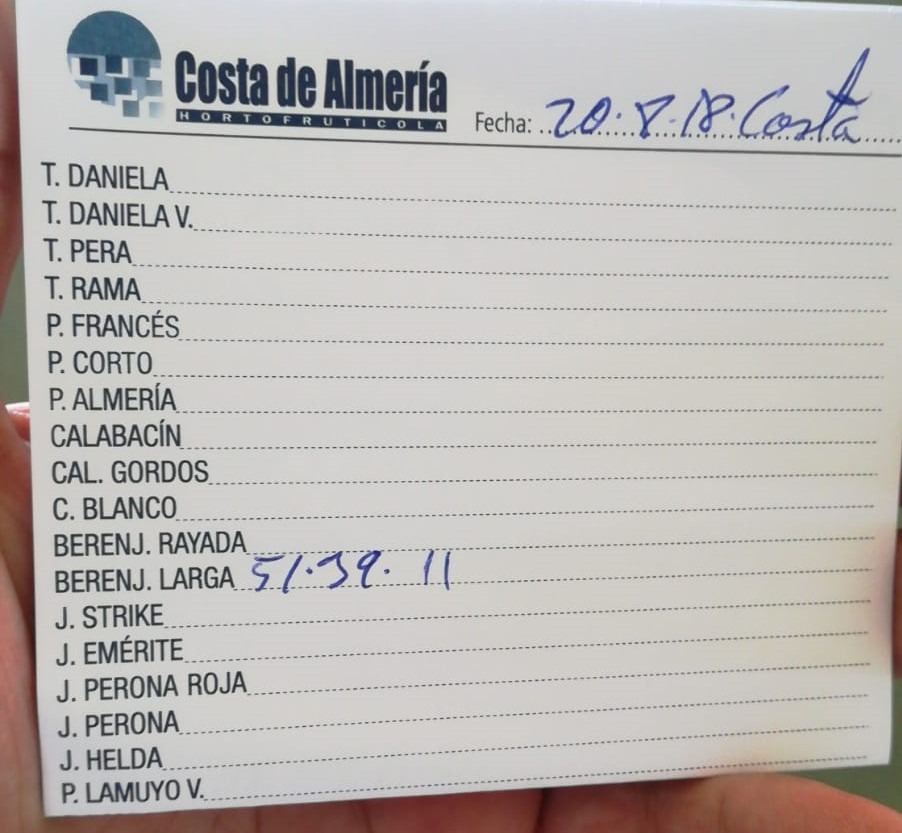 Costa de Almería
HORTOFRUTICOLA
Fecha: 20·8·18·Costa
T. DANIELA
T. DANIELA V.
T. PERA
T. RAMA
P. FRANCÉS
P. CORTO
P. ALMERÍA
CALABACÍN
CAL. GORDOS
C. BLANCO
BERENJ. RAYADA
BERENJ. LARGA 51·39·11
J. STRIKE
J. EMÉRITE
J. PERONA ROJA
J. PERONA
J. HELDA
P. LAMUYO V.